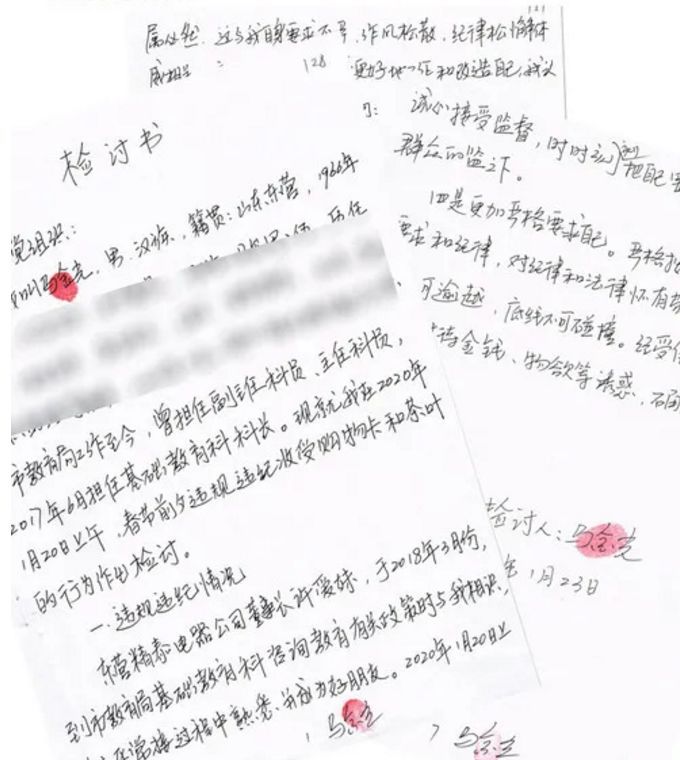 检讨书
党组织:
我叫马金克,男,汉族,籍贯:山东东营,1966年
市教育局工作至今,曾担任副主任科员、主任科员,
2017年6月担任基础教育科科长。现就我在2020年
1月20日上午,春节前夕违规违纪收受购物卡和茶叶
的行为作出检讨。
一.违规违纪情况
东营精泰电器公司董事长许爱妹,于2018年3月份,
到市教育局基础教育科咨询教育有关政策时与我相识,
过程中熟悉、并成为好朋友。2020年1月20日上
马金克
马金克
128
这与我自身要求不严,作风松散,纪律松懈
诚心接受监督,时时
把自己
群众的监
下。
四是更加严格要求自己。严格
要求和纪律,对纪律和法律怀有
可逾越,底线不可碰撞。经受
金钱、物欲等诱惑,
检讨人:马金克
年1月23日